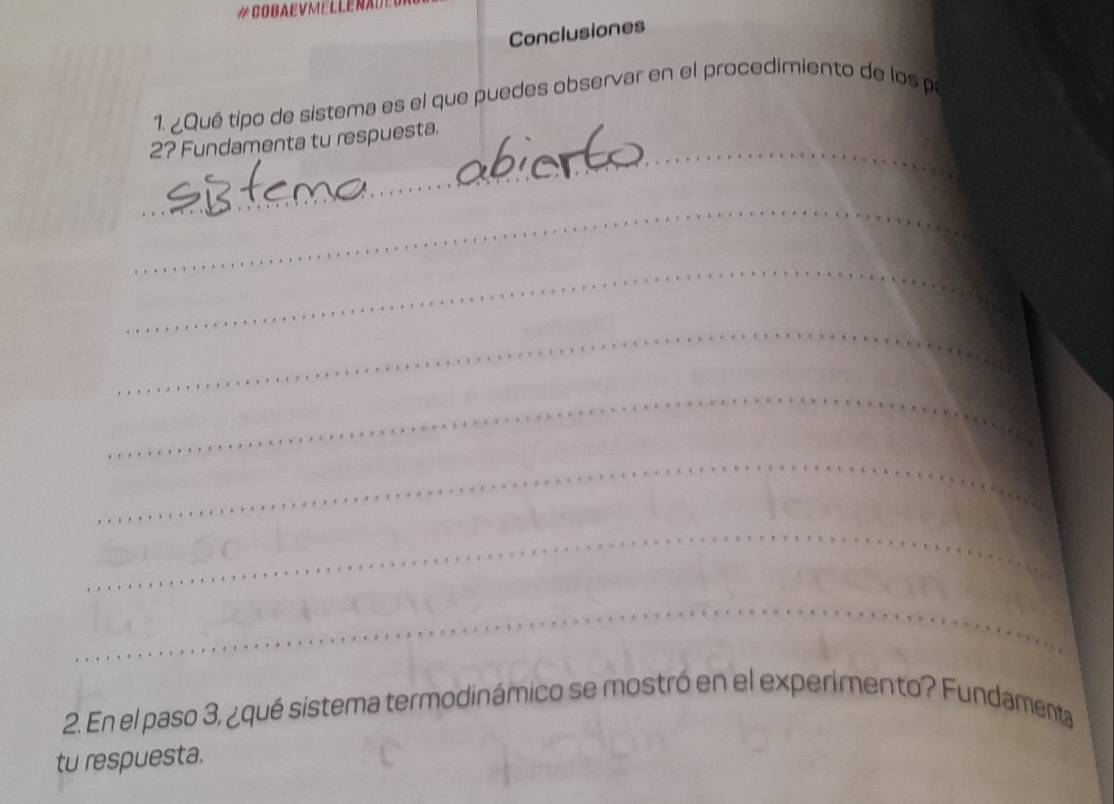 Conclusiones
1. ¿Qué tipo de sistema es el que puedes observar en el procedimiento de los
2? Fundamenta tu respuesta.
sistema abierto
2. En el paso 3, ¿qué sistema termodinámico se mostró en el experimento? Fundamenta
tu respuesta.